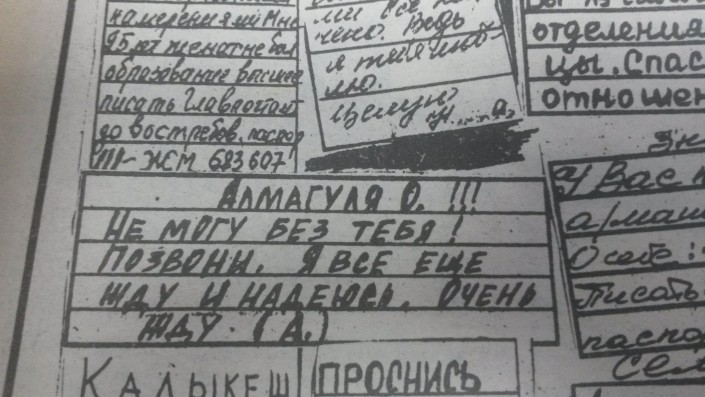 намерениями. Мне
25 лет женат не был
образование высшее
писать Главпочтамт
до востребов. паспор
ЖМ 683607
ми все
чено. Ведь
я тебя люб-
лю.
Целую
отделения
цы. Спас
отношен
АЛМАГУЛЯ О. !!!
НЕ МОГУ БЕЗ ТЕБЯ!
ПОЗВОНИ. Я ВСЕ ЕЩЕ
ЖДУ И НАДЕЮСЬ. ОЧЕНЬ
ЖДУ. (А.)
У Вас
а/маш
О себе:
Писать
паспо
Сем
КАЛЫКЕШ
ПРОСНИСЬ